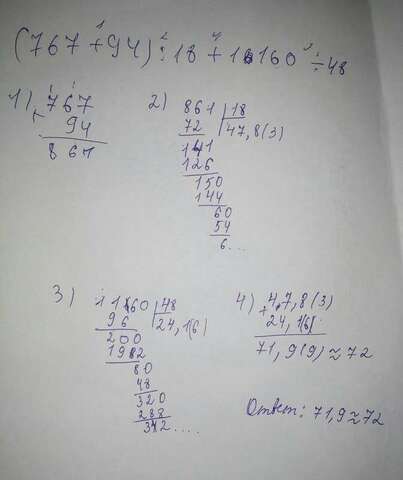 (767+94):18+1160÷48
1) 767
+
94
861
2) 861 | 18
72 47,8(3)
141
126
150
144
60
54
6...
3) 1160 | 48
96 24,1(6)
200
192
80
48
320
288
32....
4) 47,8(3)
+
24,1(6)
71,9(9) ≈ 72
Ответ: 71,9 ≈ 72